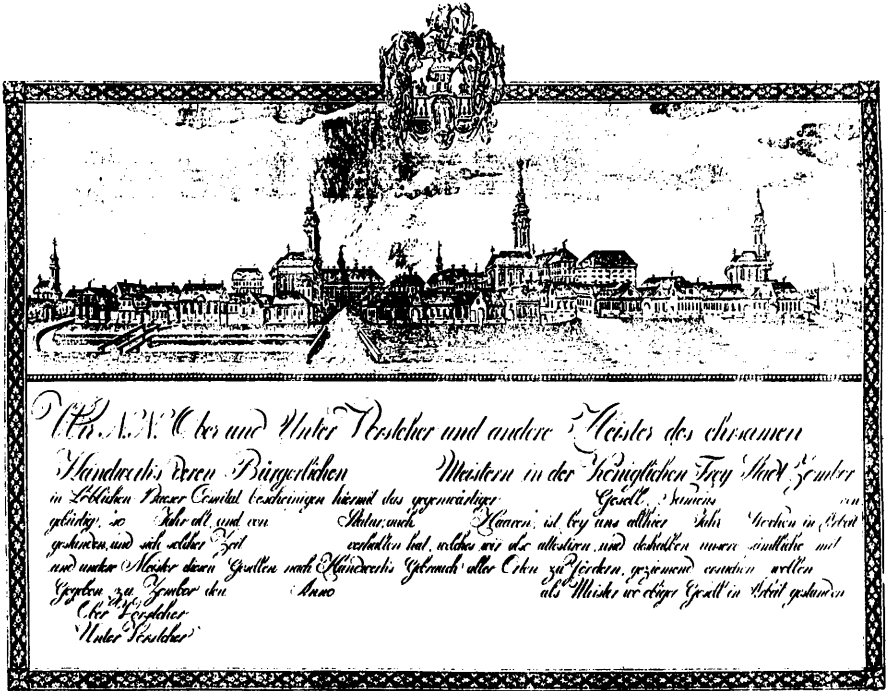 Wir N. N. Ober und Unter Vorsteher und andere Meister des ehrsamen
Handwercks deren Bürgerlichen Meistern in der Königlichen Frey Stadt Zombor
in Löblichen Bacser Comitat bescheinigen hiermit das gegenwärtiger Gesell, Namens von
gebürtig, so Jahr alt, und von Statur, auch Haaren, ist bey uns allhier Jahr Wochen in Arbeit
gestanden, und sich solcher Zeit verhalten hat, welches wir also attestiren, und deshalben unsere sämtliche mit
und andere Meister diesen Gesellen nach Handwercks Gebrauch aller Orten zu fördern, geziemend ersuchen wollen
Gegeben zu Zombor den Anno als Meister wo obiger Gesell in Arbeit gestanden
Ober Vorsteher
Unter Vorsteher